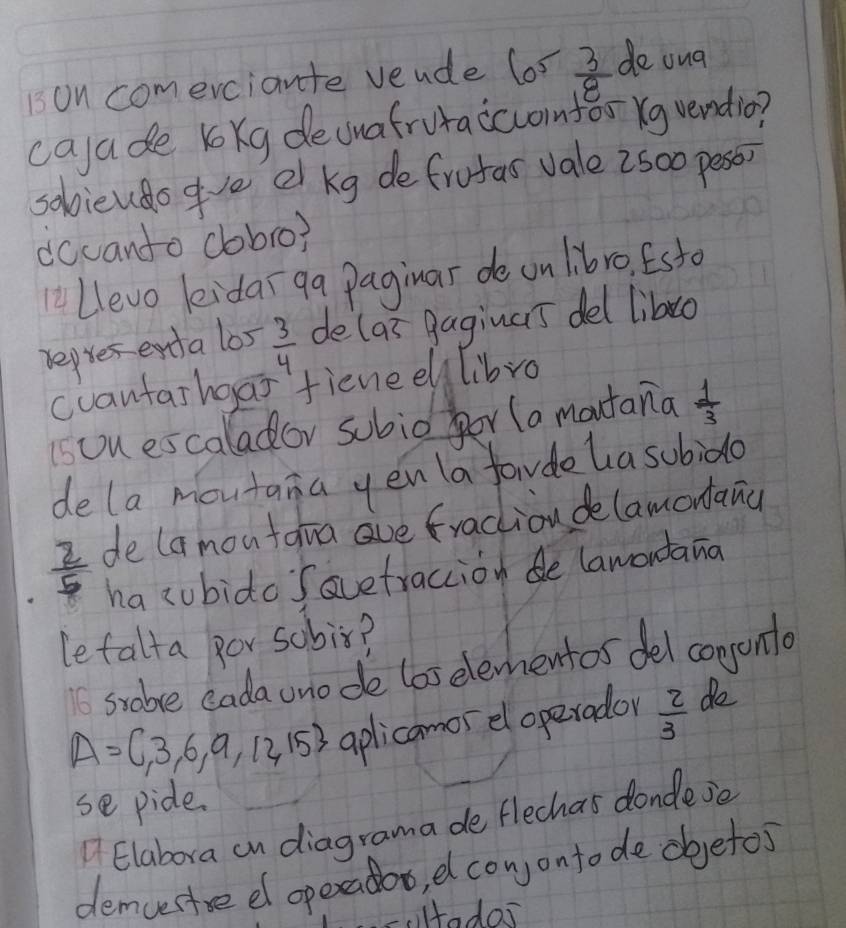 13 Un comerciante vende los 3/8 de una
caja de 16 Kg de una fruta ¿cuantos Kg vendio?
sabiendo que el kg de frutas vale 2500 pesos
¿cuanto cobro?
14 Llevo leidas 99 paginas de un libro. Esto
representa los 3/4 de las Paginas del libro
cuantas hojas tiene el libro
15 Un escalador subio por la montaña 1/3
de la montaña y en la tarde ha subido
2/5 de la montaña que fraccion de la montaña
ha subido ¿que fracción de la montaña
le falta por subir?
16 sobre cada uno de los elementos del conjunto
A = {,3,6,9,12,15} aplicamos el operador 2/3 de
se pide.
17 Elabora un diagrama de flechas donde se
demuestre el operador, el conjunto de objetos